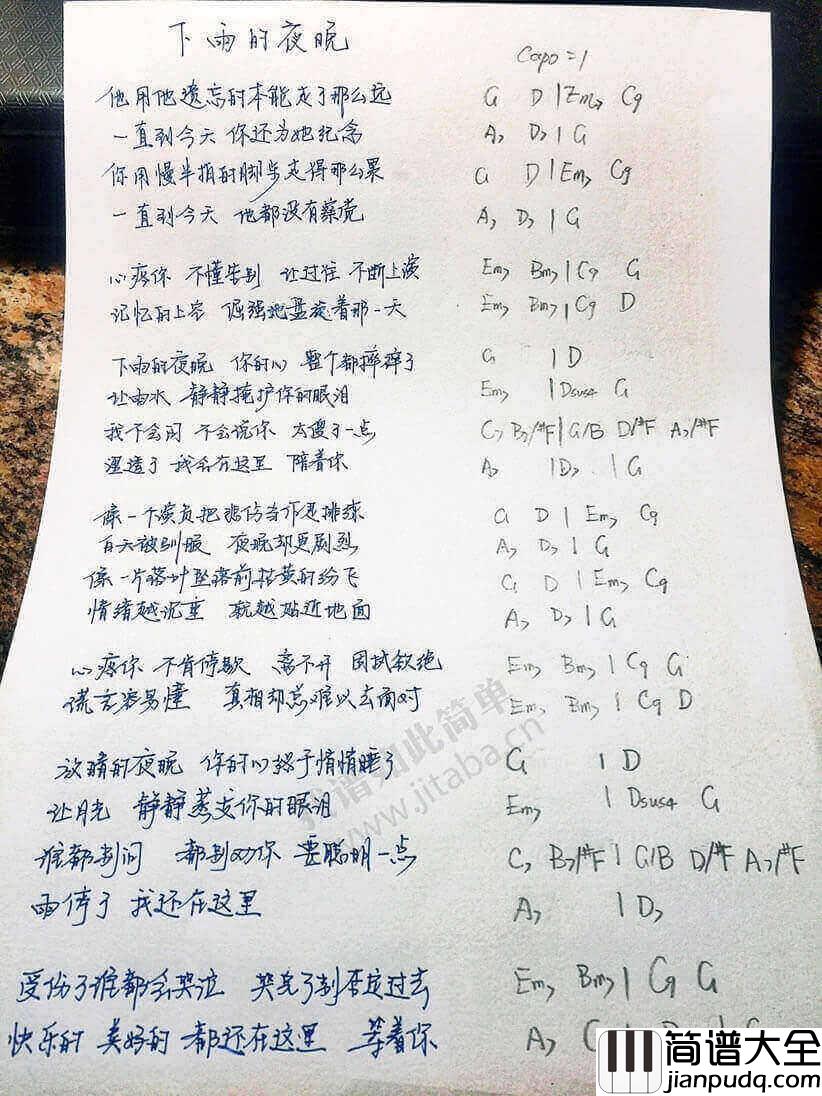 下雨的夜晚
Capo=1
他用他遗忘的本能走了那么远 G D | Em7 C9
一直到今天 你还为她纪念 A7 D7 | G
你用慢半拍的脚步走得那么累 G D | Em7 C9
一直到今天 他都没有察觉 A7 D7 | G
心疼你 不懂告别 让过往 不断上演 Em7 Bm7 | C9 G
记忆的上空 倔强地盘旋着那一天 Em7 Bm7 | C9 D
下雨的夜晚 你的心 整个都摔碎了 G | D
让雨水 静静掩护你的眼泪 Em7 | Dsus4 G
我不会问 不会说你 太傻了一点 C7 B7/#F | G/B D/#F A7/#F
湿透了 我会在这里 陪着你 A7 | D7 | G
像一个演员把悲伤当作是排练 G D | Em7 C9
白天被驯服 夜晚却更剧烈 A7 D7 | G
像一片落叶坠落前枯黄的纷飞 G D | Em7 C9
情绪越沉重 就越贴近地面 A7 D7 | G
心疼你 不肯停歇 离不开 因拭欲绝 Em7 Bm7 | C9 G
谎言容易懂 真相却总难以去面对 Em7 Bm7 | C9 D
放晴的夜晚 你的心终于悄悄睡了 G | D
让月光 静静蒸发你的眼泪 Em7 | Dsus4 G
谁都别问 都别劝你 要聪明一点 C7 B7/#F | G/B D/#F A7/#F
雨停了 我还在这里 A7 | D7
受伤了谁都会哭泣 哭完了别否定过去 Em7 Bm7 | C9 G
快乐的 美好的 都还在这里 等着你 A7
找谱如此简单
www.jitaba.cn
简谱大全
jianpudq.com